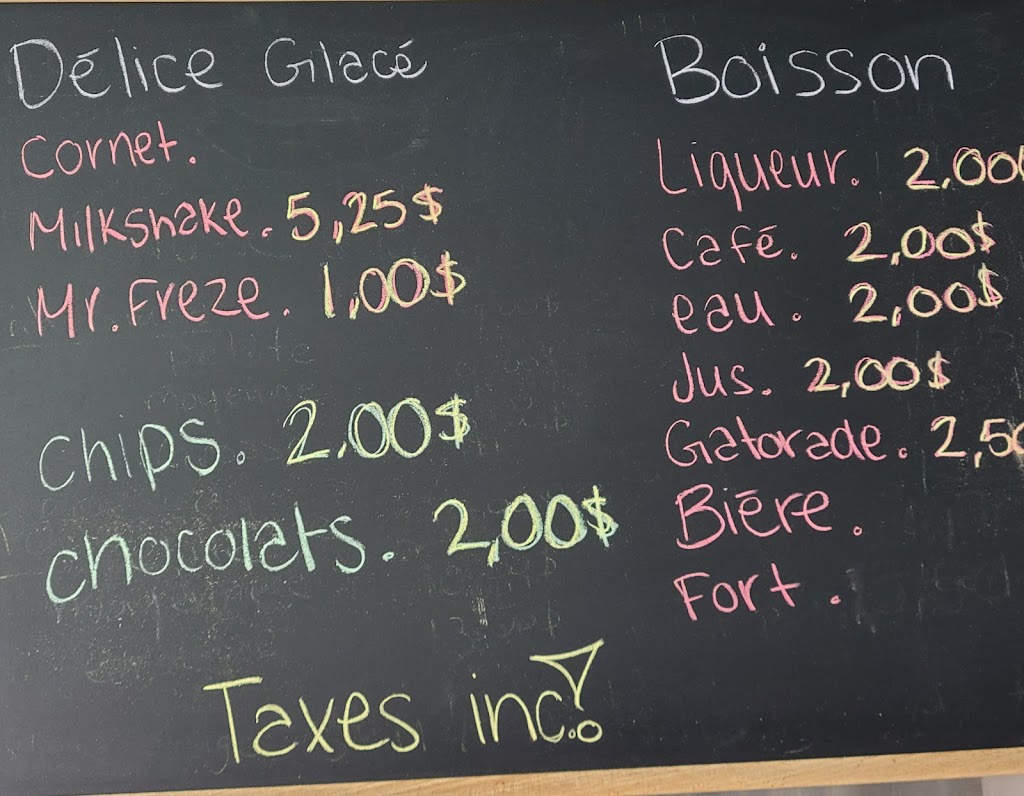 Délice Glacé
Cornet.
Milkshake. 5,25$
Mr. Freze. 1,00$
Chips. 2.00$
chocolats. 2,00$
Boisson
Liqueur. 2,00
Café. 2,00$
eau. 2,00$
Jus. 2,00$
Gatorade. 2,50
Bière.
Fort.
Taxes inc.!